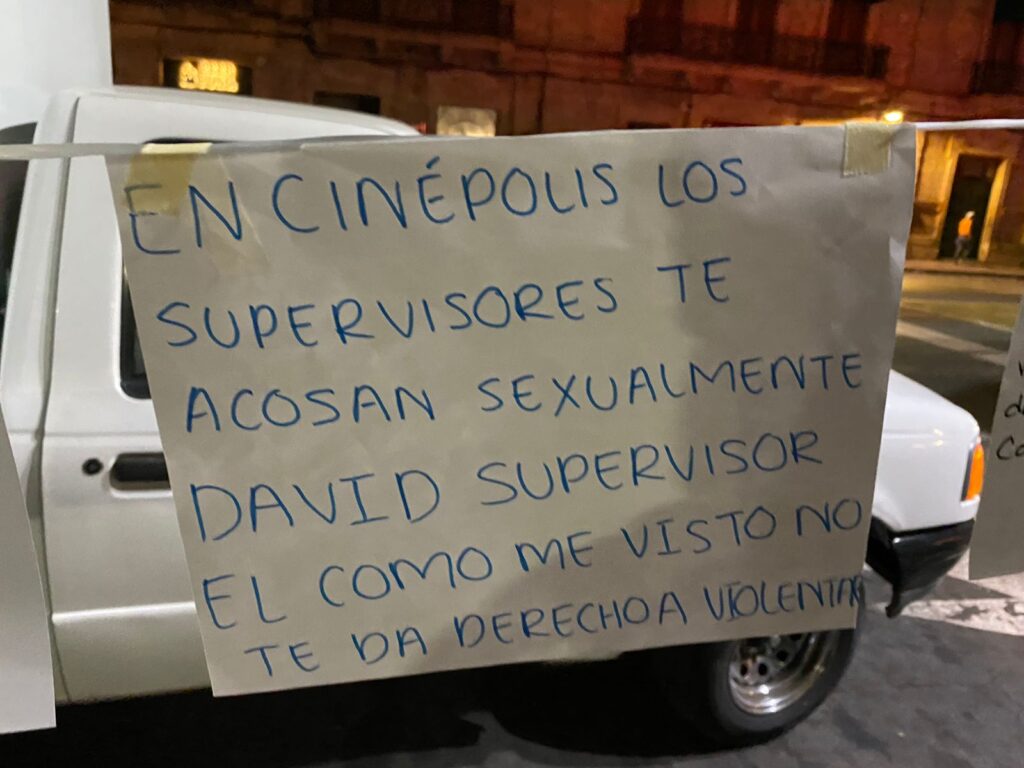 EN CINÉPOLIS LOS
SUPERVISORES TE
ACOSAN SEXUALMENTE
DAVID SUPERVISOR
EL COMO ME VISTO NO
TE DA DERECHO A VIOLENTAR